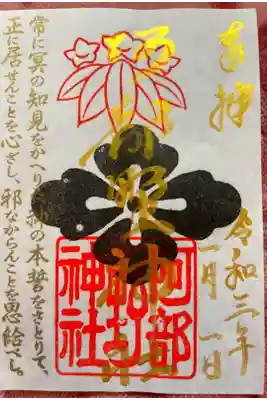 奉拝
令和三年
一月一日
阿部野神社
阿部野神社
常に冥の知見をかへりみ、神の本誓をさとりて、
正に居せんことを心ざし、邪なからんことを思給べし。